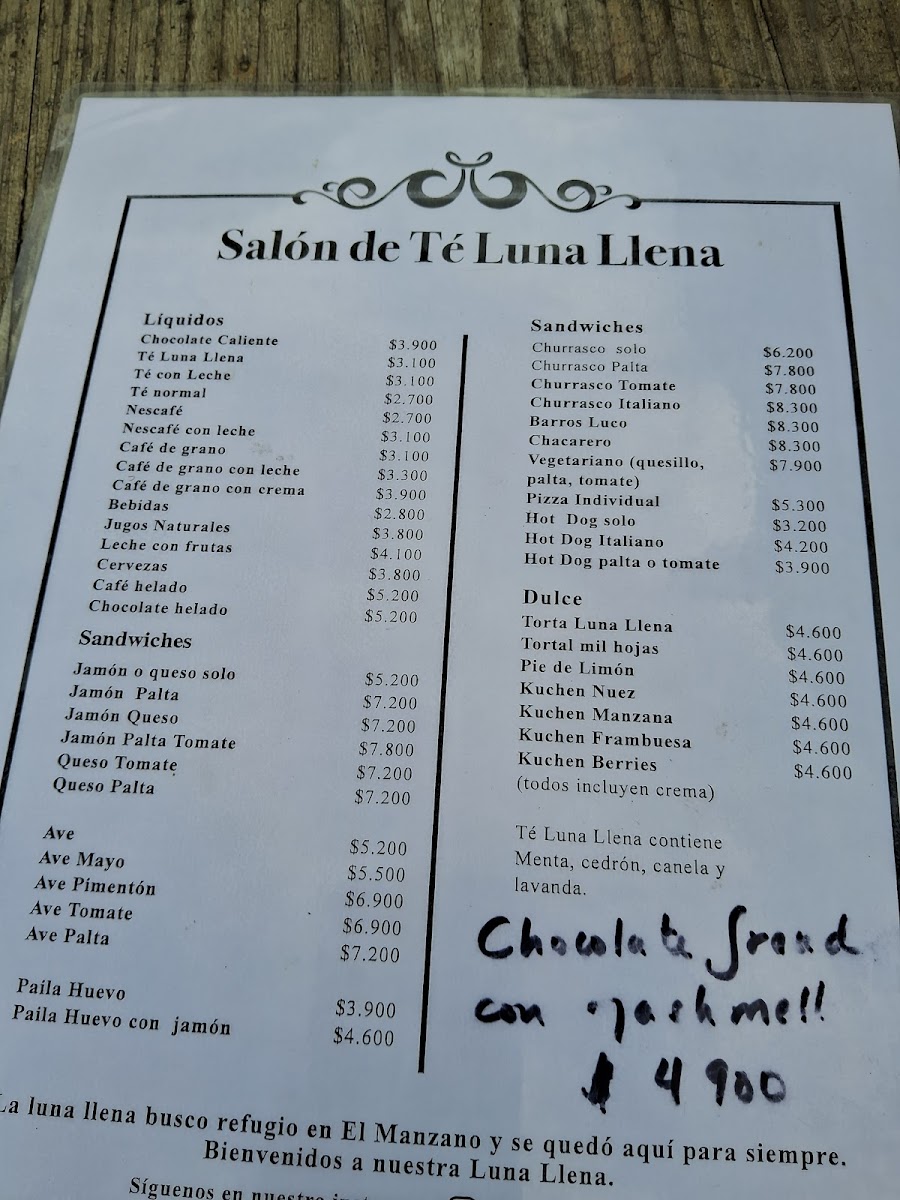 Salón de Té Luna Llena
Líquidos
Chocolate Caliente $3.900
Té Luna Llena $3.100
Té con Leche $3.100
Té normal $2.700
Nescafé $2.700
Nescafé con leche $3.100
Café de grano $3.100
Café de grano con leche $3.300
Café de grano con crema $3.900
Bebidas $2.800
Jugos Naturales $3.800
Leche con frutas $4.100
Cervezas $3.800
Café helado $5.200
Chocolate helado $5.200
Sandwiches
Jamón o queso solo $5.200
Jamón Palta $7.200
Jamón Queso $7.200
Jamón Palta Tomate $7.800
Queso Tomate $7.200
Queso Palta $7.200
Ave $5.200
Ave Mayo $5.500
Ave Pimentón $6.900
Ave Tomate $6.900
Ave Palta $7.200
Paila Huevo $3.900
Paila Huevo con jamón $4.600
Sandwiches
Churrasco solo $6.200
Churrasco Palta $7.800
Churrasco Tomate $7.800
Churrasco Italiano $8.300
Barros Luco $8.300
Chacarero $8.300
Vegetariano (quesillo, $7.900
palta, tomate)
Pizza Individual $5.300
Hot Dog solo $3.200
Hot Dog Italiano $4.200
Hot Dog palta o tomate $3.900
Dulce
Torta Luna Llena $4.600
Tortal mil hojas $4.600
Pie de Limón $4.600
Kuchen Nuez $4.600
Kuchen Manzana $4.600
Kuchen Frambuesa $4.600
Kuchen Berries $4.600
(todos incluyen crema)
Té Luna Llena contiene
Menta, cedrón, canela y
lavanda.
Chocolate Grand
con
$ 4900
La luna llena busco refugio en El Manzano y se quedó aquí para siempre.
Bienvenidos a nuestra Luna Llena.
Síguenos en nuestro